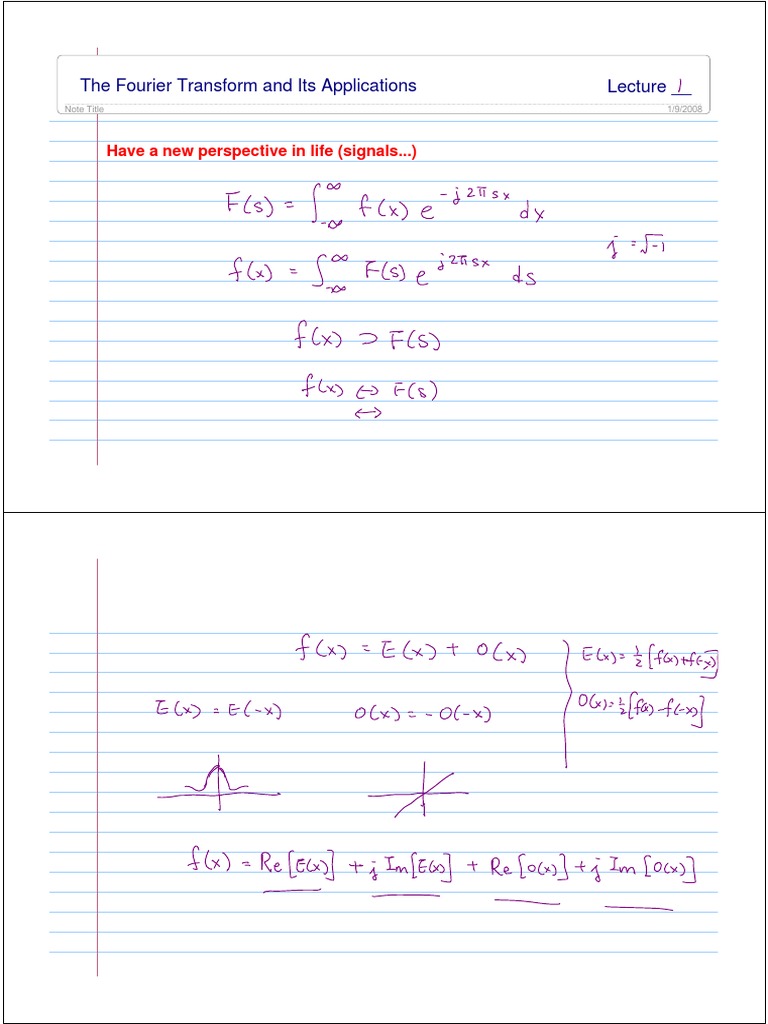 The Fourier Transform and Its Applications Lecture 1
Note Title 1/9/2008
Have a new perspective in life (signals...)
F(s) = ∫_{-∞}^{∞} f(x) e^{-j2πsx} dx
j = √-1
f(x) = ∫_{-∞}^{∞} F(s) e^{j2πsx} ds
f(x) ⊃ F(s)
f(x) ⇔ F(s)
↔
f(x) = E(x) + O(x)
E(x) = 1/2 [f(x)+f(-x)]
E(x) = E(-x) O(x) = -O(-x)
O(x) = 1/2 [f(x) - f(-x)]
f(x) = Re[E(x)] + j Im[E(x)] + Re[O(x)] + j Im[O(x)]